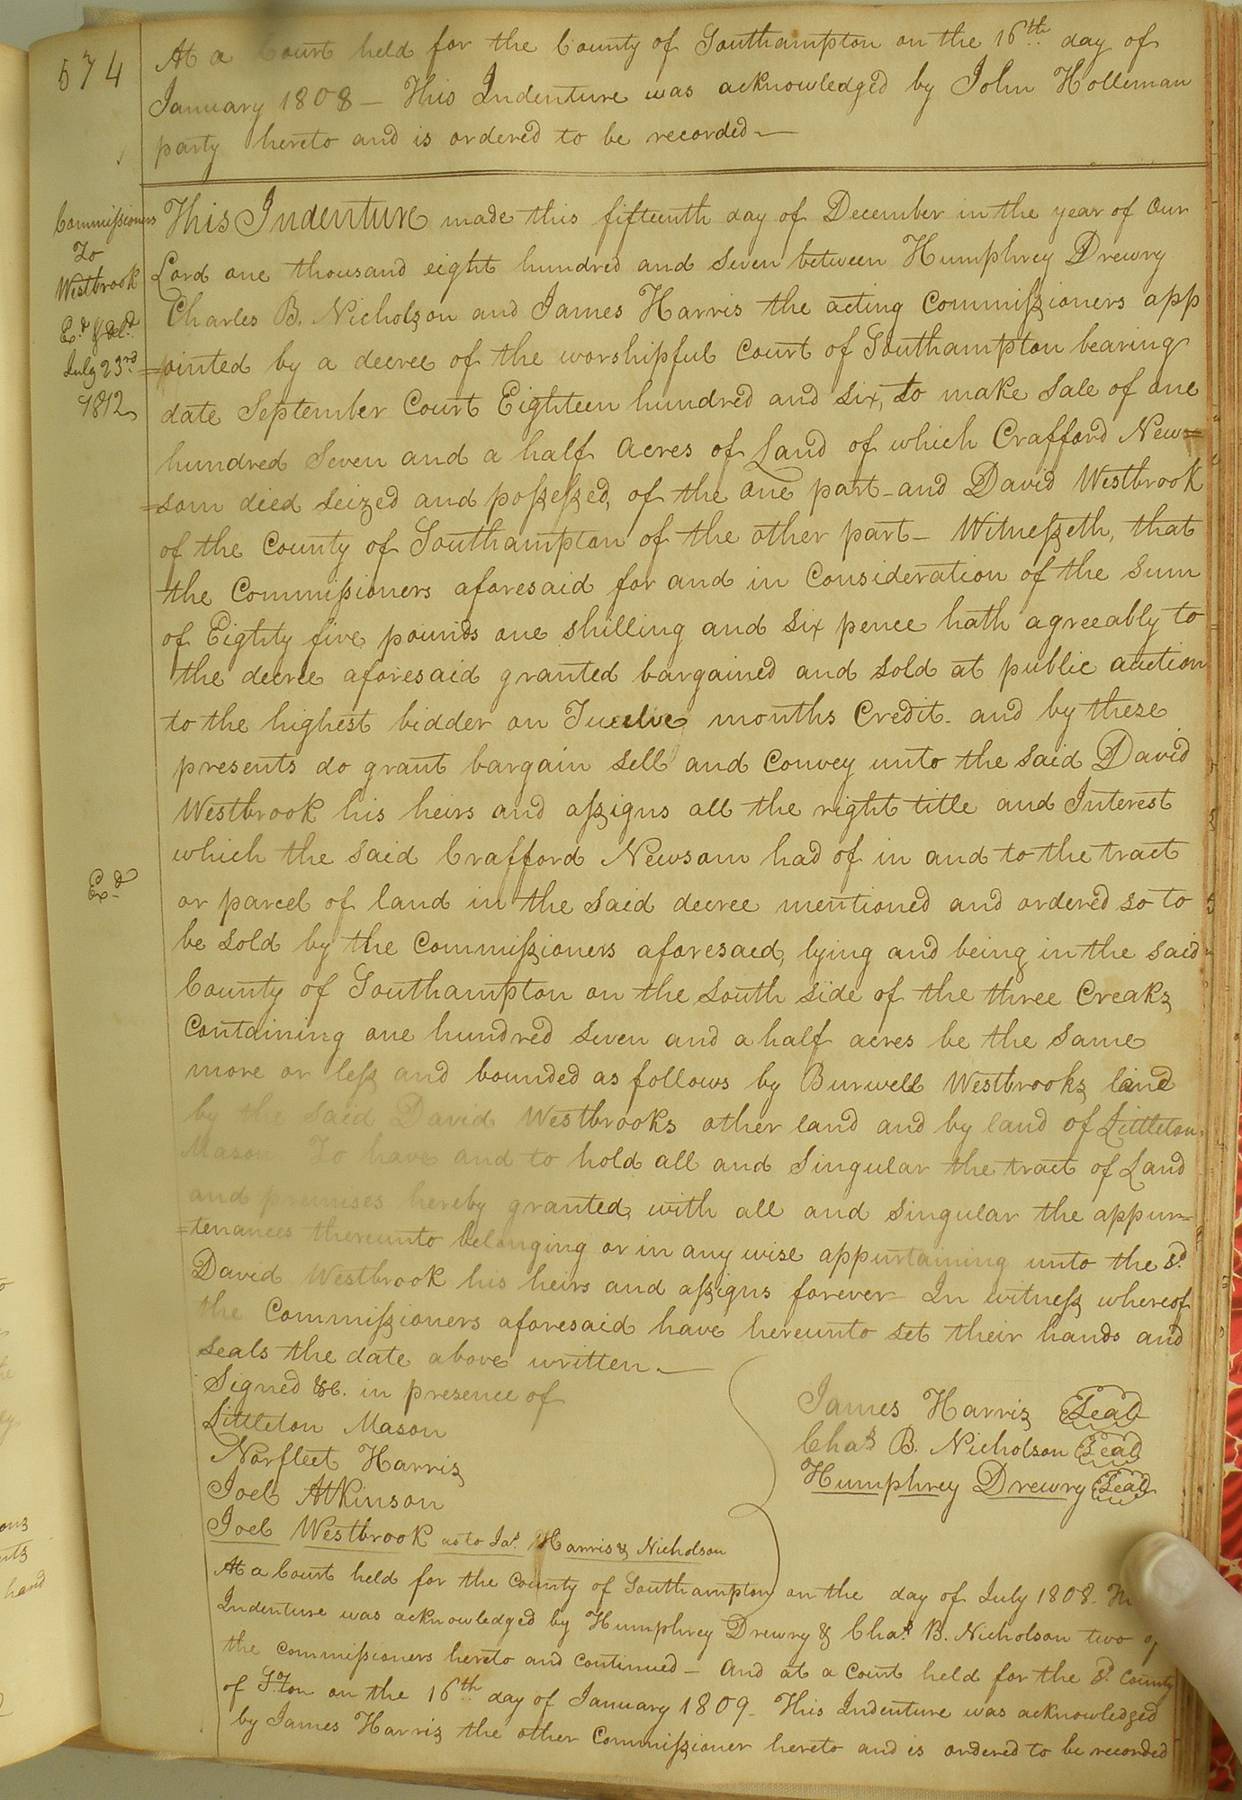 574
At a Court held for the County of Southampton on the 16th day of
January 1808 - This Indenture was acknowledged by John Holleman
party hereto and is ordered to be recorded -
Commissioners
To
Westbrook
Exd & deld
July 23rd
1812
This Indenture made this fifteenth day of December in the year of Our
Lord one thousand eight hundred and seven between Humphrey Drewry
Charles B. Nicholson and James Harris the acting Commissioners app
=ointed by a decree of the worshipful Court of Southampton bearing
date September Court Eighteen hundred and six, to make sale of one
hundred seven and a half acres of Land of which Crafford New=
=som died seized and possessed, of the one part - and David Westbrook
of the County of Southampton of the other part - Witnesseth, that
the Commissioners aforesaid for and in Consideration of the sum
of Eighty five pounds one shilling and six pence hath agreeably to
the decree aforesaid granted bargained and sold at public auction
to the highest bidder on Twelve months Credit - and by these
presents do grant bargain sell and Convey unto the said David
Westbrook his heirs and assigns all the right title and Interest
which the said Crafford Newsom had of in and to the tract
Exd
or parcel of land in the said decree mentioned and ordered so to
be sold by the Commissioners aforesaid, lying and being in the said
County of Southampton on the south side of the three Creaks
Containing one hundred seven and a half acres be the same
more or less and bounded as follows by Burwell Westbrooks land
by the said David Westbrooks other land and by land of Littleton
Mason To have and to hold all and singular the tract of Land
and premises hereby granted, with all and singular the appur=
=tenances thereunto belonging or in any wise appurtaining unto the sd
David Westbrook his heirs and assigns forever - In witness whereof
the Commissioners aforesaid have hereunto set their hands and
seals the date above written. -
Signed &c. in presence of
Littleton Mason
Norfleet Harris
Joel Atkinson
Joel Westbrook as to Jas Harris & Nicholson
James Harris Seal
Chas B. Nicholson Seal
Humphrey Drewry Seal
At a Court held for the County of Southampton on the day of July 1808.
Indenture was acknowledged by Humphrey Drewry & Chas B. Nicholson two
the commissioners hereto and continued - And at a Court held for the sd County
of S.ton on the 16th day of January 1809 - This Indenture was acknowledged
by James Harris the other Commissioner hereto and is ordered to be recorded